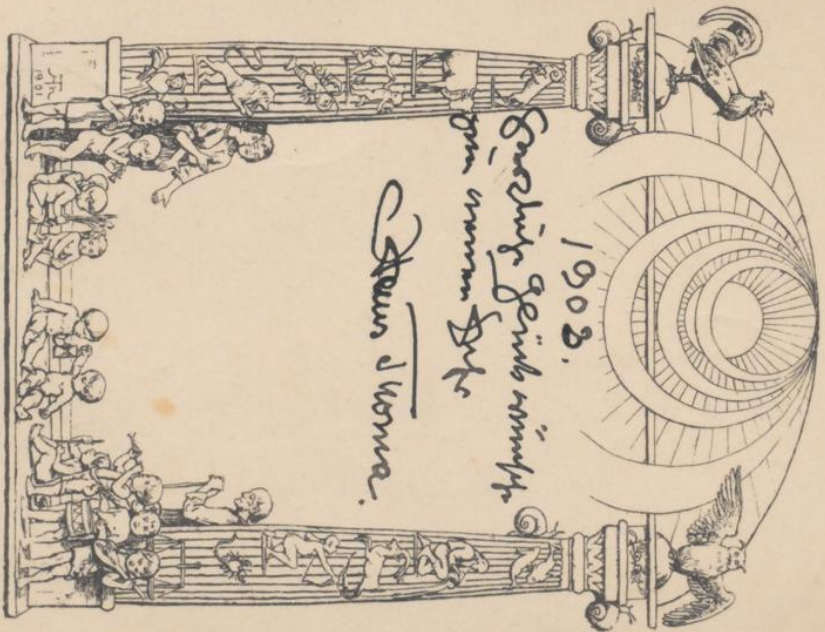 1903.
Herzliche Glückwünsche
zum neuen Jahr
Hans Thoma.
HTh
1901